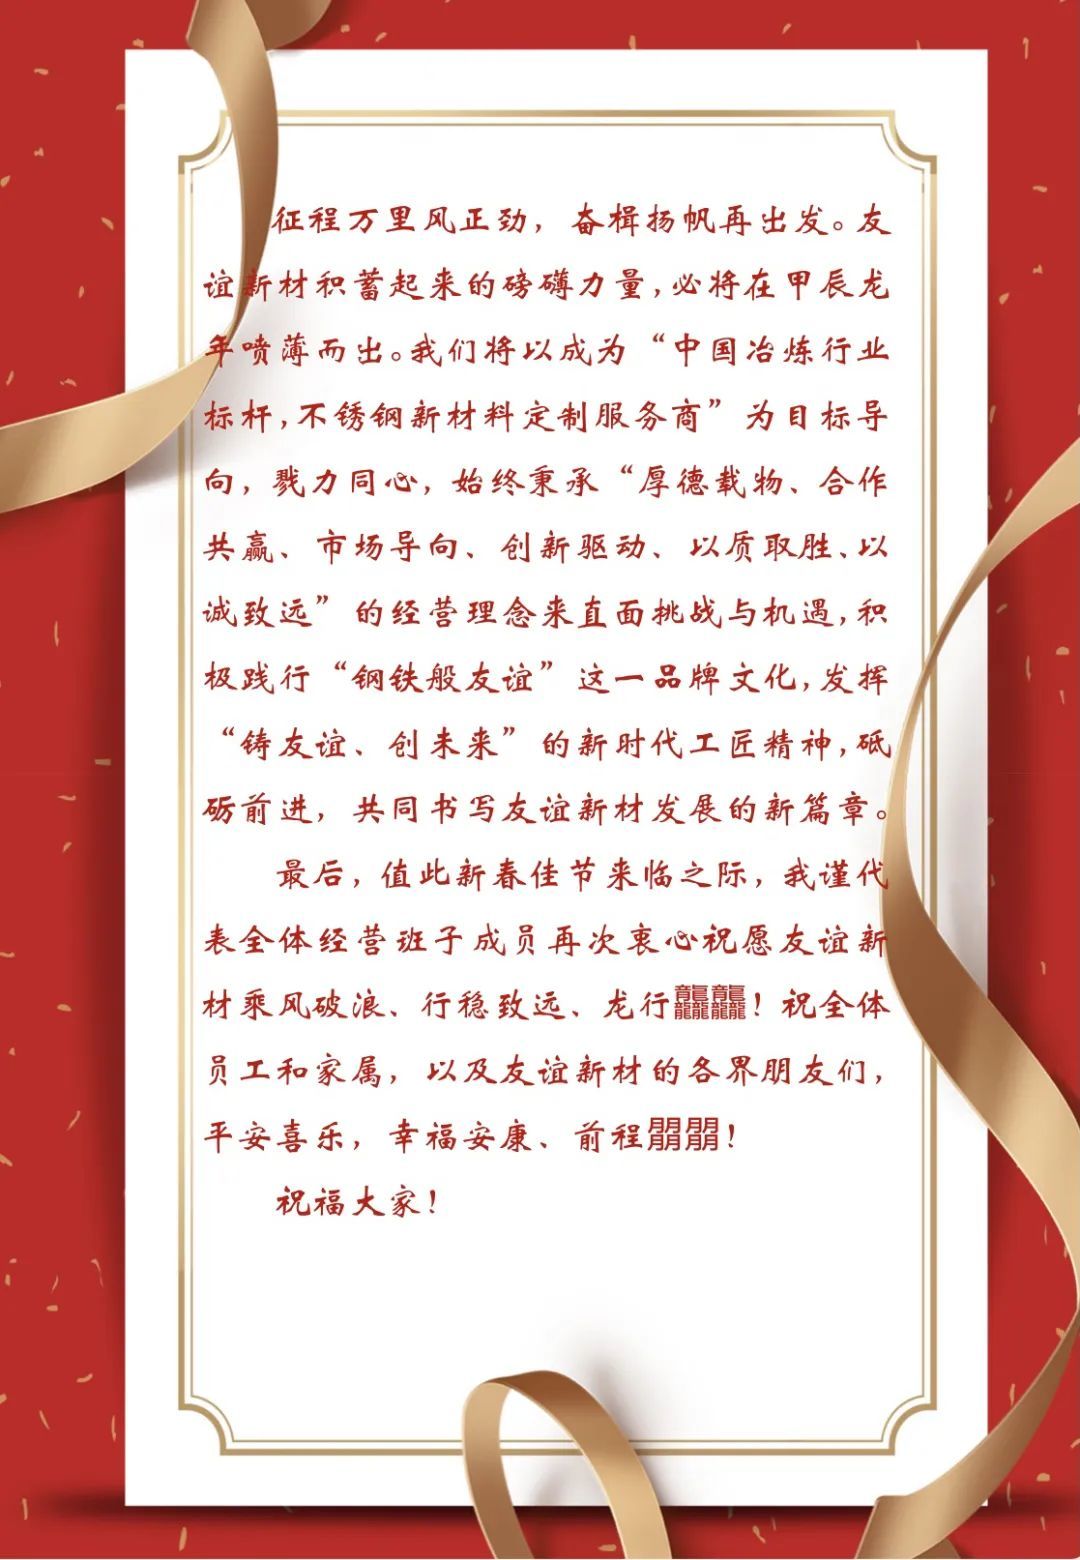 征程万里风正劲，奋楫扬帆再出发。友
谊新材积蓄起来的磅礴力量，必将在甲辰龙
年喷薄而出。我们将以成为“中国冶炼行业
标杆，不锈钢新材料定制服务商”为目标导
向，戮力同心，始终秉承“厚德载物、合作
共赢、市场导向、创新驱动、以质取胜、以
诚致远”的经营理念来直面挑战与机遇，积
极践行“钢铁般友谊”这一品牌文化，发挥
“铸友谊、创未来”的新时代工匠精神，砥
砺前进，共同书写友谊新材发展的新篇章。
最后，值此新春佳节来临之际，我谨代
表全体经营班子成员再次衷心祝愿友谊新
材乘风破浪、行稳致远、龙行龘龘！祝全体
员工和家属，以及友谊新材的各界朋友们，
平安喜乐，幸福安康、前程朤朤！
祝福大家！